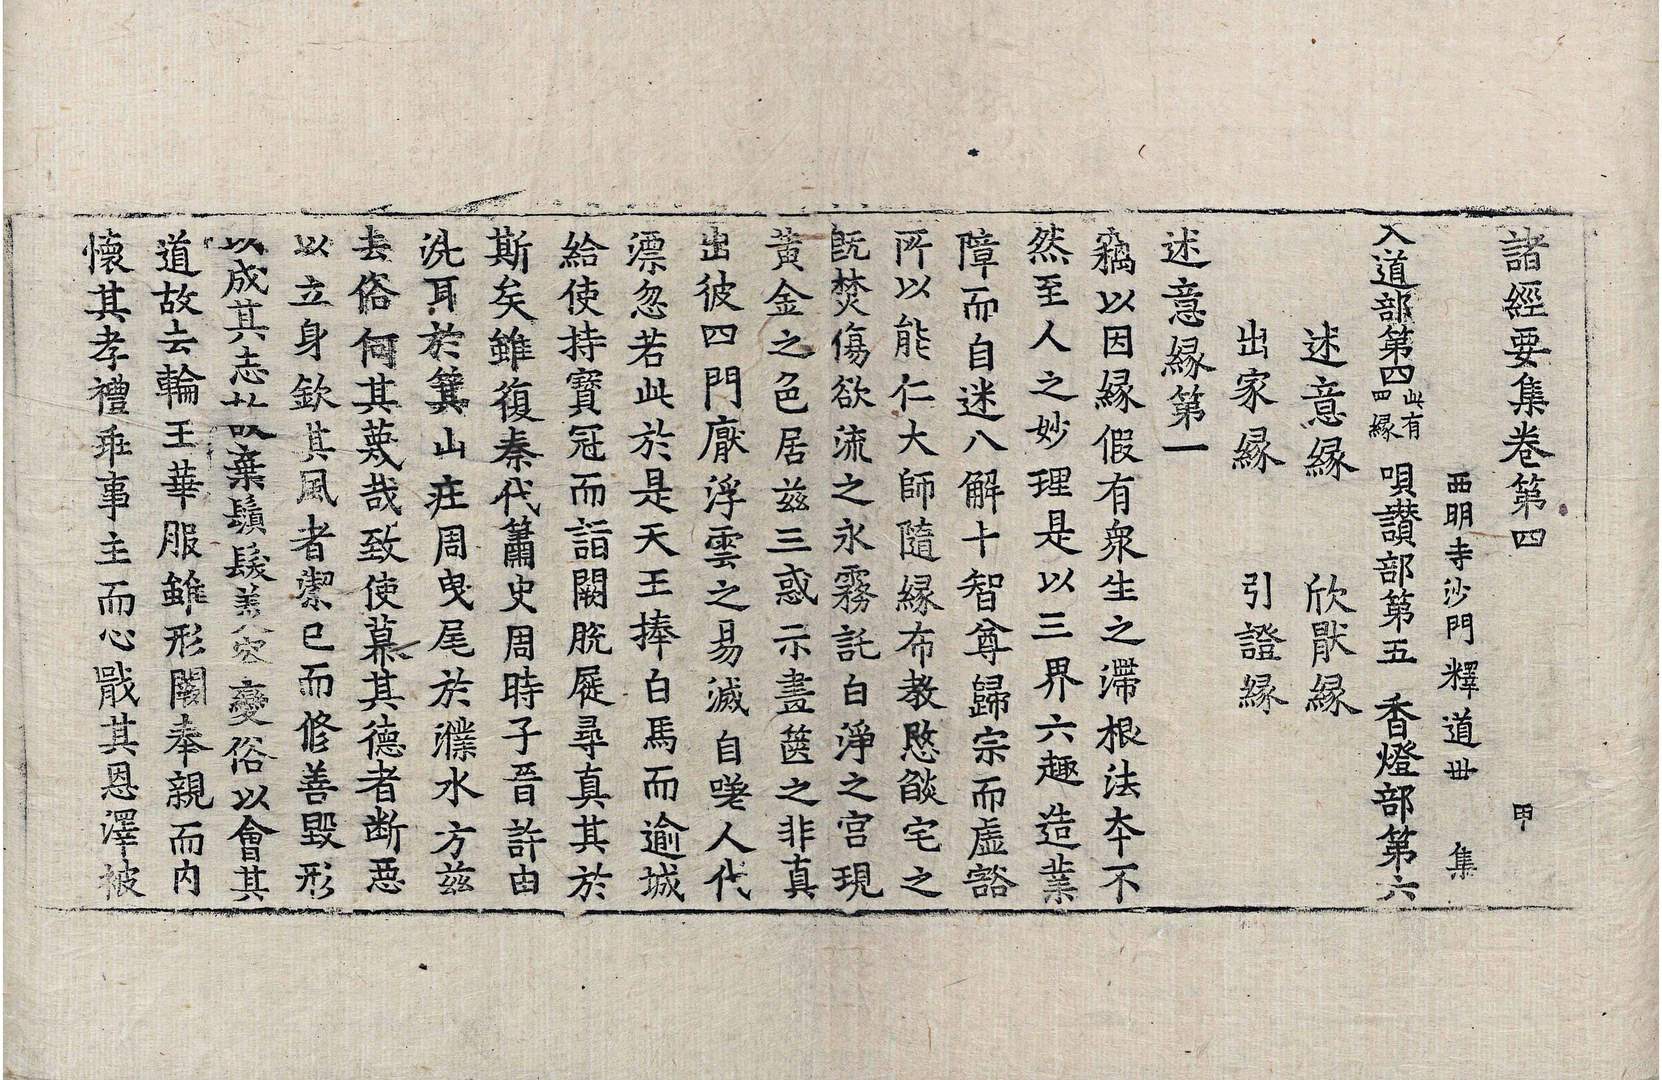 諸經要集卷第四　甲
西明寺沙門釋道世　集
入道部第四此有四緣　唄讚部第五　香燈部第六
述意緣　欣猒緣
出家緣　引證緣
述意緣第一
竊以因緣假有衆生之滯根法夲不
然至人之妙理是以三界六趣造業
障而自迷八解十智尊歸宗而虛豁
所以能仁大師隨緣布教愍𦦨宅之
旣焚傷欲流之永霧託白淨之宮現
黃金之色居兹三惑示畫篋之非真
出彼四門厭浮雲之易滅自嗟人代
漂忽若此於是天王捧白馬而逾城
給使持寶冠而詣闕脫屣尋真其於
斯矣雖復秦代簫史周時子晉許由
洗耳於箕山庄周曳尾於濮水方兹
去俗何其蔑哉致使慕其德者断惡
以立身欽其風者潔已而修善毀形
以成其志故棄鬚髮美容變俗以會其
道故去輪王華服雖形闕奉親而內
懷其孝禮乖事主而心戢其恩澤被